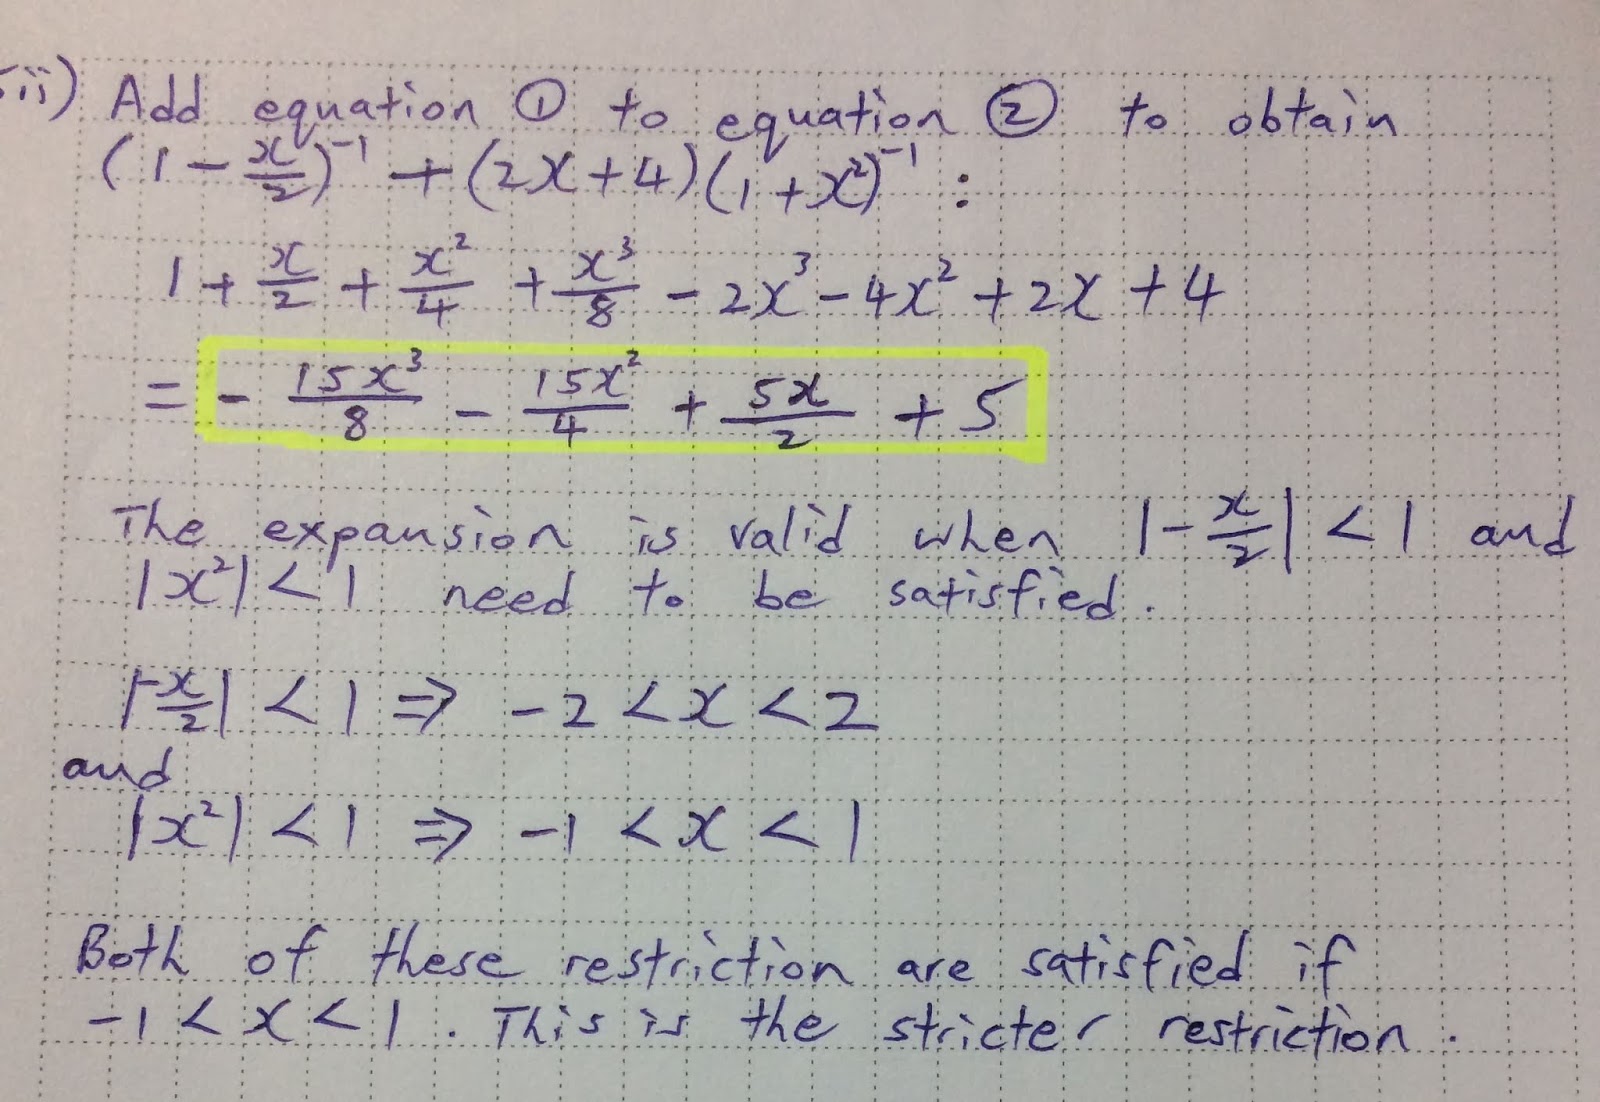 ii) Add equation ① to equation ② to obtain
(1 - x/2)⁻¹ + (2x+4)(1+x²)⁻¹ :
1 + x/2 + x²/4 + x³/8 - 2x³ - 4x² + 2x + 4
= - 15x³/8 - 15x²/4 + 5x/2 + 5
The expansion is valid when |-x/2| < 1 and
|x²| < 1 need to be satisfied.
|-x/2| < 1 ⇒ -2 < x < 2
and
|x²| < 1 ⇒ -1 < x < 1
Both of these restriction are satisfied if
-1 < x < 1. This is the stricter restriction.